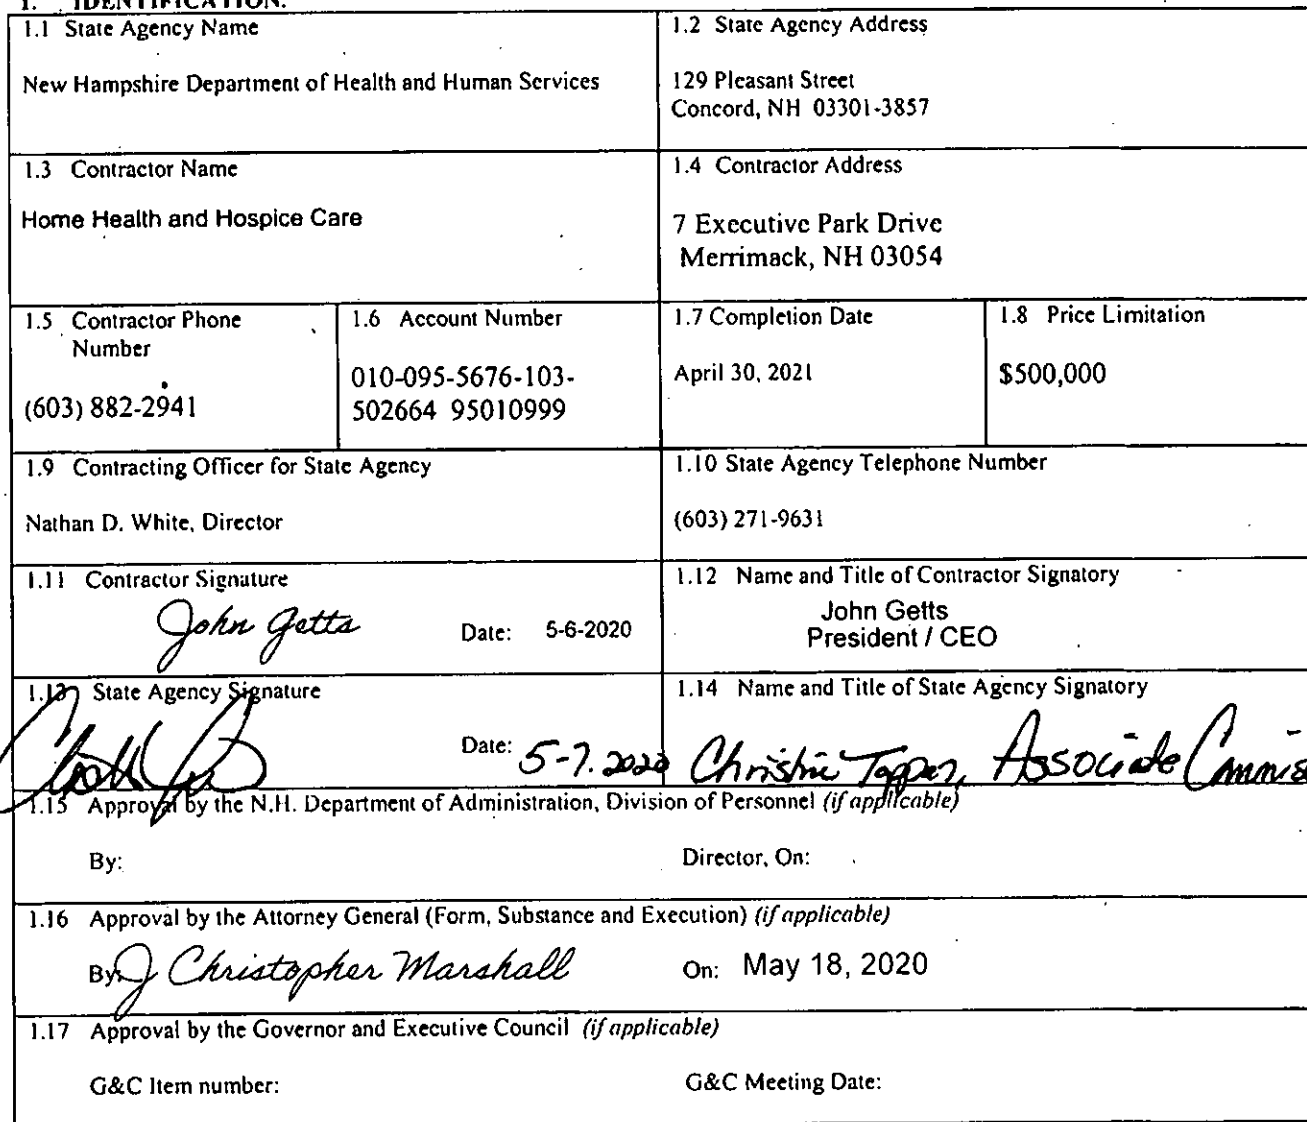 1. IDENTIFICATION.
1.1 State Agency Name
New Hampshire Department of Health and Human Services
1.2 State Agency Address
129 Pleasant Street
Concord, NH 03301-3857
1.3 Contractor Name
Home Health and Hospice Care
1.4 Contractor Address
7 Executive Park Drive
Merrimack, NH 03054
1.5 Contractor Phone
Number
(603) 882-2941
1.6 Account Number
010-095-5676-103-
502664 95010999
1.7 Completion Date
April 30, 2021
1.8 Price Limitation
$500,000
1.9 Contracting Officer for State Agency
Nathan D. White, Director
1.10 State Agency Telephone Number
(603) 271-9631
1.11 Contractor Signature
John Getts Date: 5-6-2020
1.12 Name and Title of Contractor Signatory
John Getts
President / CEO
1.13 State Agency Signature
Date: 5-7.2020
1.14 Name and Title of State Agency Signatory
Christine Tappan, Associate Commis
1.15 Approval by the N.H. Department of Administration, Division of Personnel (if applicable)
By: Director, On:
1.16 Approval by the Attorney General (Form, Substance and Execution) (if applicable)
By: J Christopher Marshall On: May 18, 2020
1.17 Approval by the Governor and Executive Council (if applicable)
G&C Item number: G&C Meeting Date: